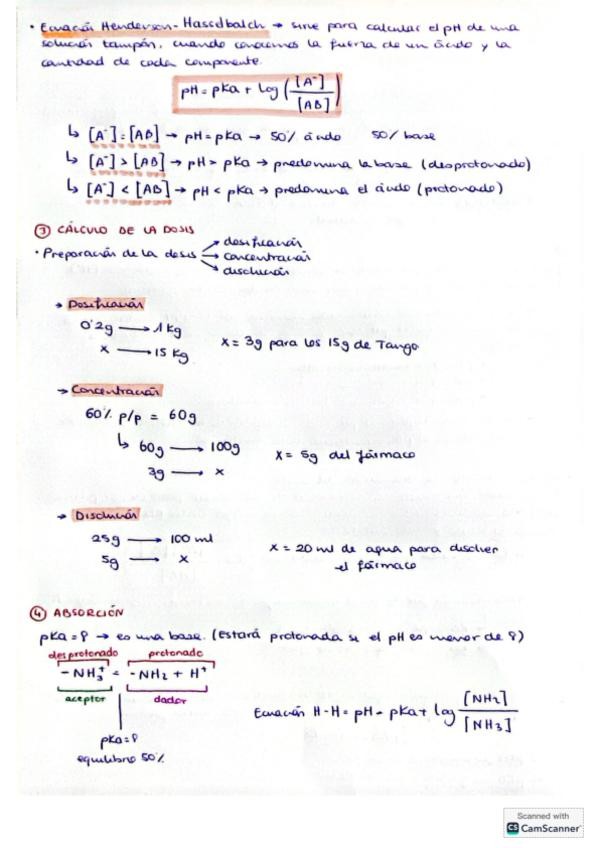 • Ecuación Henderson-Hasselbalch → sirve para calcular el pH de una
solución tampón, cuando conocemos la fuerza de un ácido y la
cantidad de cada componente.
pH = pKa + log ([A⁻]/[AB])
↳ [A⁻] = [AB] → pH = pKa → 50% ácido 50% base
↳ [A⁻] > [AB] → pH > pKa → predomina la base (desprotonado)
↳ [A⁻] < [AB] → pH < pKa → predomina el ácido (protonado)
③ CÁLCULO DE LA DOSIS
• Preparación de la dosis → dosificación
→ concentración
→ disolución
→ Dosificación
0'2g → 1 Kg
x → 15 Kg
x = 3g para los 15g de Tango
→ Concentración
60% p/p = 60g
↳ 60g → 100g
3g → x
x = 5g del fármaco
→ Disolución
25g → 100 ml
5g → x
x = 20 ml de agua para disolver
el fármaco
④ ABSORCIÓN
pKa = 8 → es una base. (Estará protonada si el pH es menor de 8)
desprotonado protonado
-NH₃⁺ = -NH₂ + H⁺
aceptor dador
pKa = 8
equilibrio 50%
Ecuación H-H = pH = pKa + log [NH₂]/[NH₃]
Scanned with
CS CamScanner